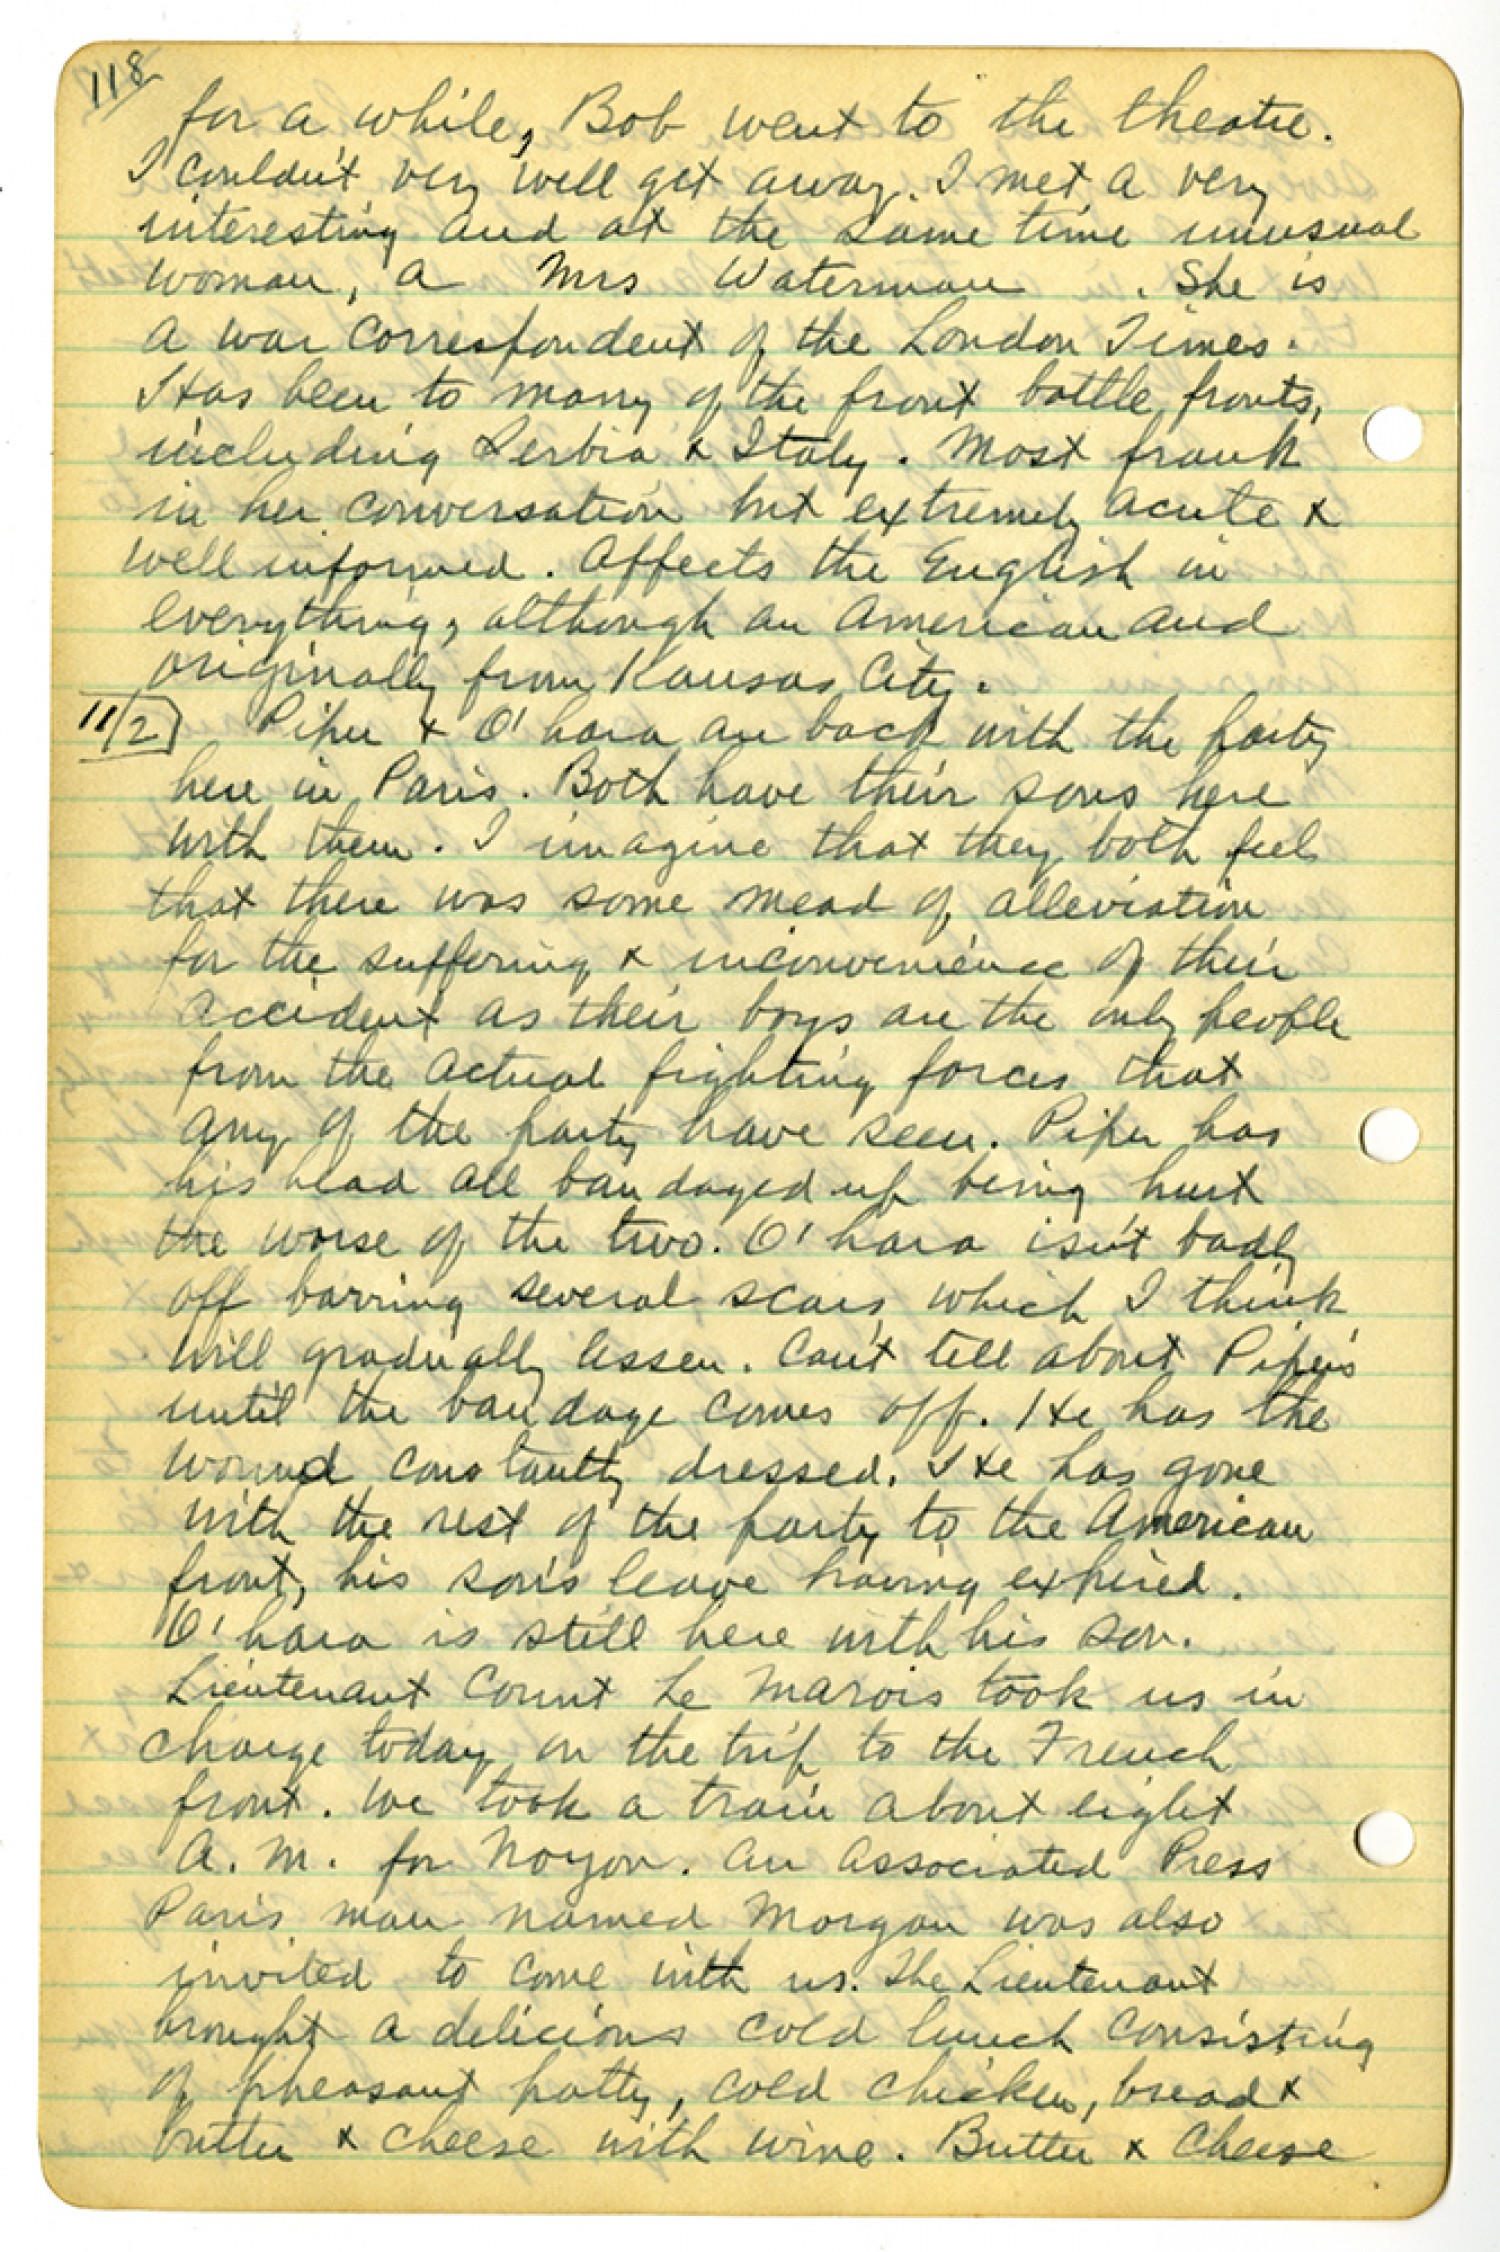 118
for a while, Bob went to the theatre.
I couldn't very well get away. I met a very
interesting and at the same time unusual
woman, a Mrs Waterman . She is
a war correspondent of the London Times.
Has been to many of the front battle fronts,
including Serbia & Italy. Most frank
in her conversation but extremely acute &
well informed. Affects the English in
everything, although an American and
originally from Kansas City.
11/2 Piper & O'hara are back with the party
here in Paris. Both have their sons here
with them. I imagine that they both feel
that there was some mead of alleviation
for the suffering & inconvenience of their
accident as their boys are the only people
from the actual fighting forces that
any of the party have seen. Piper has
his head all bandaged up being hurt
the worse of the two. O'hara isn't badly
off barring several scars which I think
will gradually lessen. Can't tell about Piper's
until the bandage comes off. He has the
wound constantly dressed. He has gone
with the rest of the party to the American
front, his son's leave having expired.
O'hara is still here with his son.
Lieutenant Count Le Marois took us in
charge today on the trip to the French
front. We took a train about eight
A.M. for Noyon. An Associated Press
Paris man named Morgan was also
invited to come with us. The Lieutenant
brought a delicious cold lunch consisting
of pheasant patty, cold chicken, bread &
butter & cheese with wine. Butter & cheese